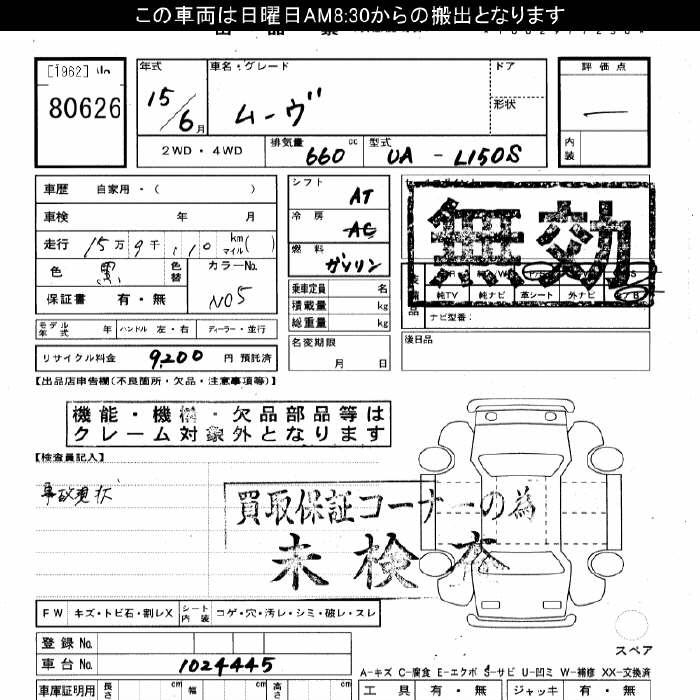 この車両は日曜日AM8:30からの搬出となります
[1962]
80626
年式 車名・グレード ドア 評価点
15/6月 ムーヴ 形状 —
2WD・4WD 排気量 660cc 型式 UA - L150S 内装
車歴 自家用・( ) シフト AT
車検 年 月 冷房 AC
走行 15万9千110 km マイル( ) 燃料 ガソリン
無効
色 黒 色替 カラーNo. NO5
乗車定員 名
保証書 有・無 積載量 kg
純TV 純ナビ 革シート 外ナビ
ナビ型番:
モデル年式 年 ハンドル 左・右 ディーラー・並行 総重量 kg
リサイクル料金 9,200 円 預託済 名変期限 月 日 後日品
【出品店申告欄(不良箇所・欠品・注意事項等)】
機能・機構・欠品部品等は
クレーム対象外となります
【検査員記入】
事故現状
買取保証コーナーの為
未検査
FW キズ・トビ石・割レX シート内装 コゲ・穴・汚レ・シミ・破レ・スレ
登録No.
スペア
車台No. 1024445
A-キズ C-腐食 E-エクボ S-サビ U-凹ミ W-補修 XX-交換済
車庫証明用 長さ cm 幅 cm 高さ cm 工具 有・無 ジャッキ 有・無